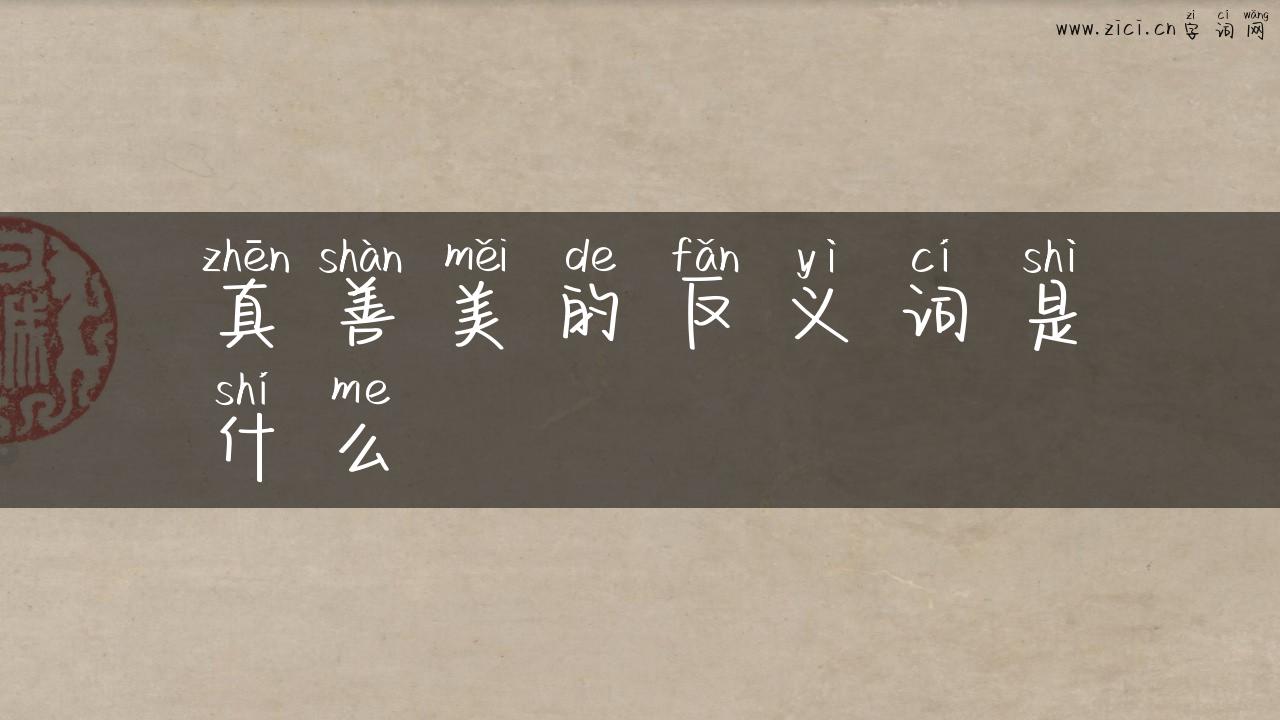 zì cí wǎng
www.zici.cn 字词网
zhēn shàn měi de fǎn yì cí shì
真善美的反义词是
shí me
什么